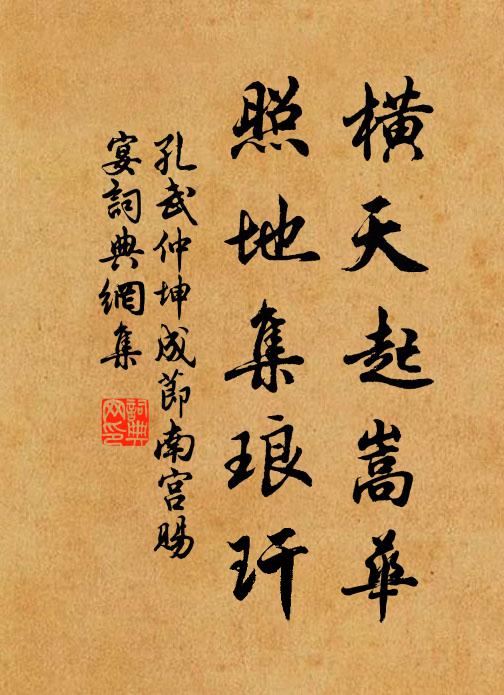 橫天起嵩華
照地集琅玕
孔武仲坤成節南宮賜
宴詞典網集
詞典
網印